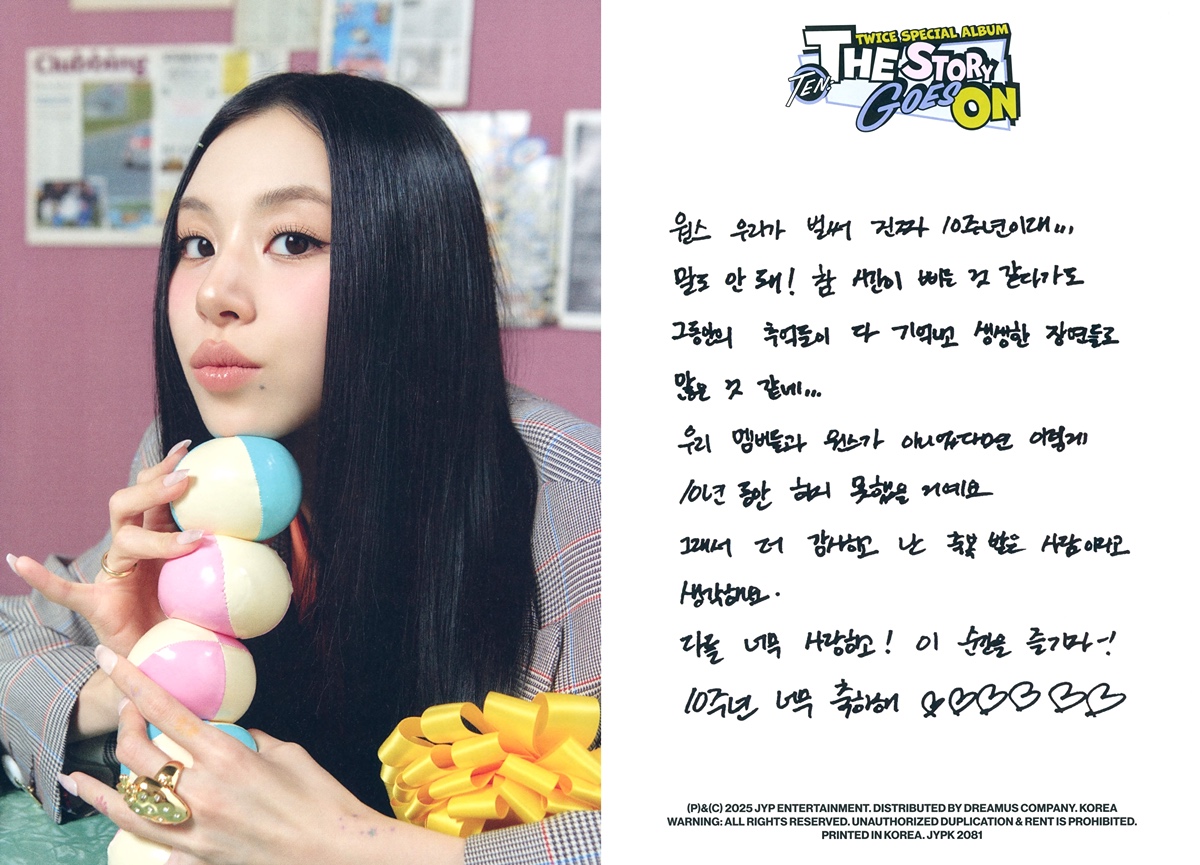 Clubbing
TWICE SPECIAL ALBUM
TEN: THE STORY
GOES ON
원스 우리가 벌써 진짜 10주년이래...
말도 안 돼! 참 시간이 빠른 것 같다가도
그동안의 추억들이 다 기억나고 생생한 장면들로
많은 것 같네...
우리 멤버들과 원스가 아니었다면 이렇게
10년 동안 하지 못했을 거예요
그래서 더 감사하고 난 축복 받은 사람이라고
생각해요.
다들 너무 사랑하고! 이 순간을 즐기자~!
10주년 너무 축하해
(P)&(C) 2025 JYP ENTERTAINMENT. DISTRIBUTED BY DREAMUS COMPANY. KOREA
WARNING: ALL RIGHTS RESERVED. UNAUTHORIZED DUPLICATION & RENT IS PROHIBITED.
PRINTED IN KOREA. JYPK 2081